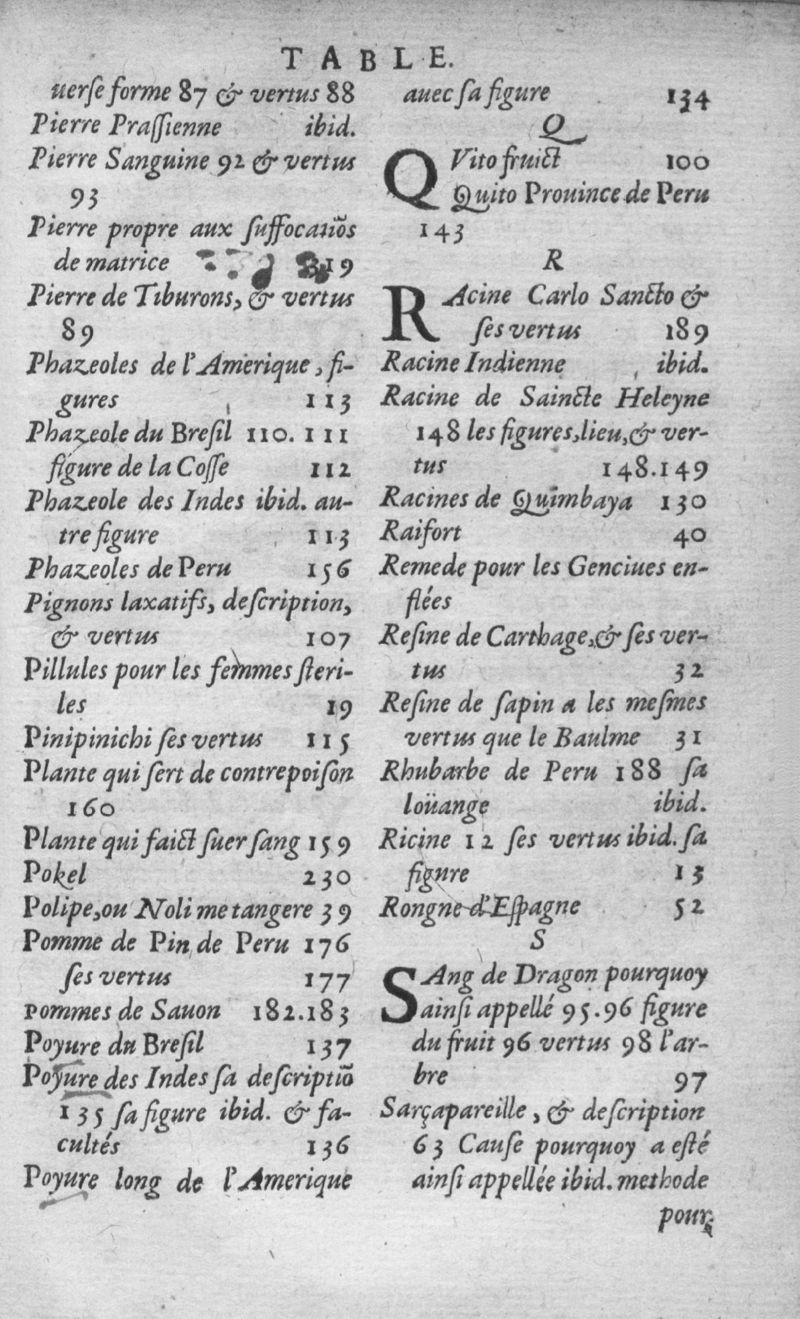 TABLE.
uerſe forme 87 & vertus 88
Pierre Praſſienne ibid.
Pierre Sanguine 92 & vertus
93
Pierre propre aux ſuffocatiõs
de matrice 19
Pierre de Tiburons, & vertus
89
Phazeoles de l'Amerique, fi-
gures 113
Phazeole du Breſil 110. 111
figure de la Coſſe 112
Phazeole des Indes ibid. au-
tre figure 113
Phazeoles de Peru 156
Pignons laxatifs, deſcription,
& vertus 107
Pillules pour les femmes ſteri-
les 19
Pinipinichi ſes vertus 115
Plante qui ſert de contrepoiſon
160
Plante qui faict ſuer ſang 159
Pokel 230
Polipe, ou Noli me tangere 39
Pomme de Pin de Peru 176
ſes vertus 177
Pommes de Sauon 182.183
Poyure du Breſil 137
Poyure des Indes ſa deſcriptiõ
135 ſa figure ibid. & fa-
cultés 136
Poyure long de l'Amerique
auec ſa figure 134
Q
QVito fruict 100
Quito Prouince de Peru
143
R
RAcine Carlo Sancto &
ſes vertus 189
Racine Indienne ibid.
Racine de Saincte Heleyne
148 les figures, lieu, & ver-
tus 148.149
Racines de Quimbaya 130
Raifort 40
Remede pour les Genciues en-
flées
Reſine de Carthage, & ſes ver-
tus 32
Reſine de ſapin a les meſmes
vertus que le Baulme 31
Rhubarbe de Peru 188 ſa
loüange ibid.
Ricine 12 ſes vertus ibid. ſa
fignre 13
Rongne d'Eſpagne 52
S
SAng de Dragon pourquoy
ainſi appellé 95.96 figure
du fruit 96 vertus 98 l'ar-
bre 97
Sarçapareille, & deſcription
63 Cauſe pourquoy a eſté
ainſi appellée ibid. methode
pour